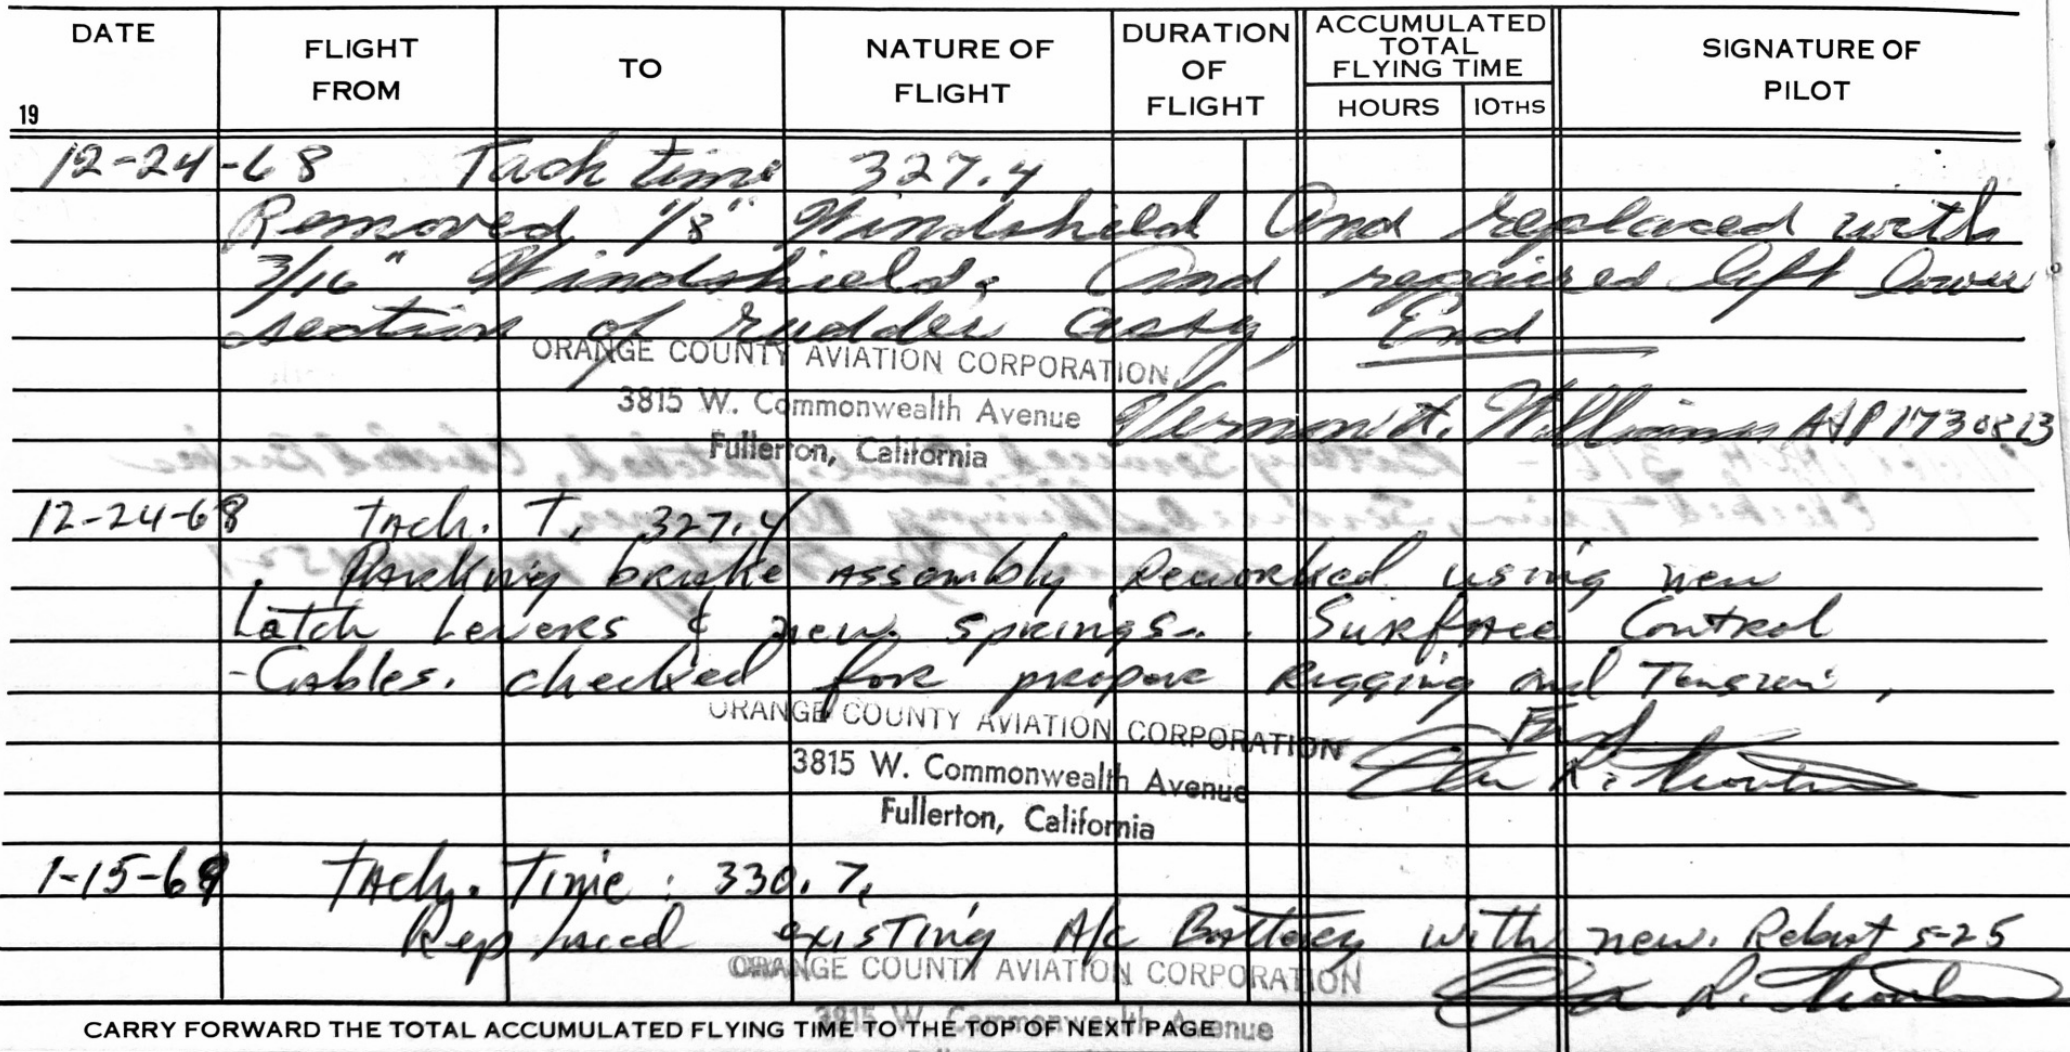 DATE
19
FLIGHT
FROM
TO
NATURE OF
FLIGHT
DURATION
OF
FLIGHT
ACCUMULATED
TOTAL
FLYING TIME
HOURS
10THS
SIGNATURE OF
PILOT
12-24-68 Tach time 327.4
Removed 1/8" Windshield and replaced with
3/16" Windshield, and repaired left lower
section of rudder assy. End
ORANGE COUNTY AVIATION CORPORATION
3815 W. Commonwealth Avenue
Fullerton, California
Williams A&P 1730823
12-24-68 Tach. T. 327.4
Parking brake assembly Reworked using new
Latch Levers & new springs. Surface Control
-Cables. checked for proper Rigging and Tension,
End
ORANGE COUNTY AVIATION CORPORATION
3815 W. Commonwealth Avenue
Fullerton, California
1-15-69 Tach. Time: 330.7.
Replaced existing A/c Battery with new. S-25
ORANGE COUNTY AVIATION CORPORATION
3815 W. Commonwealth Avenue
CARRY FORWARD THE TOTAL ACCUMULATED FLYING TIME TO THE TOP OF NEXT PAGE